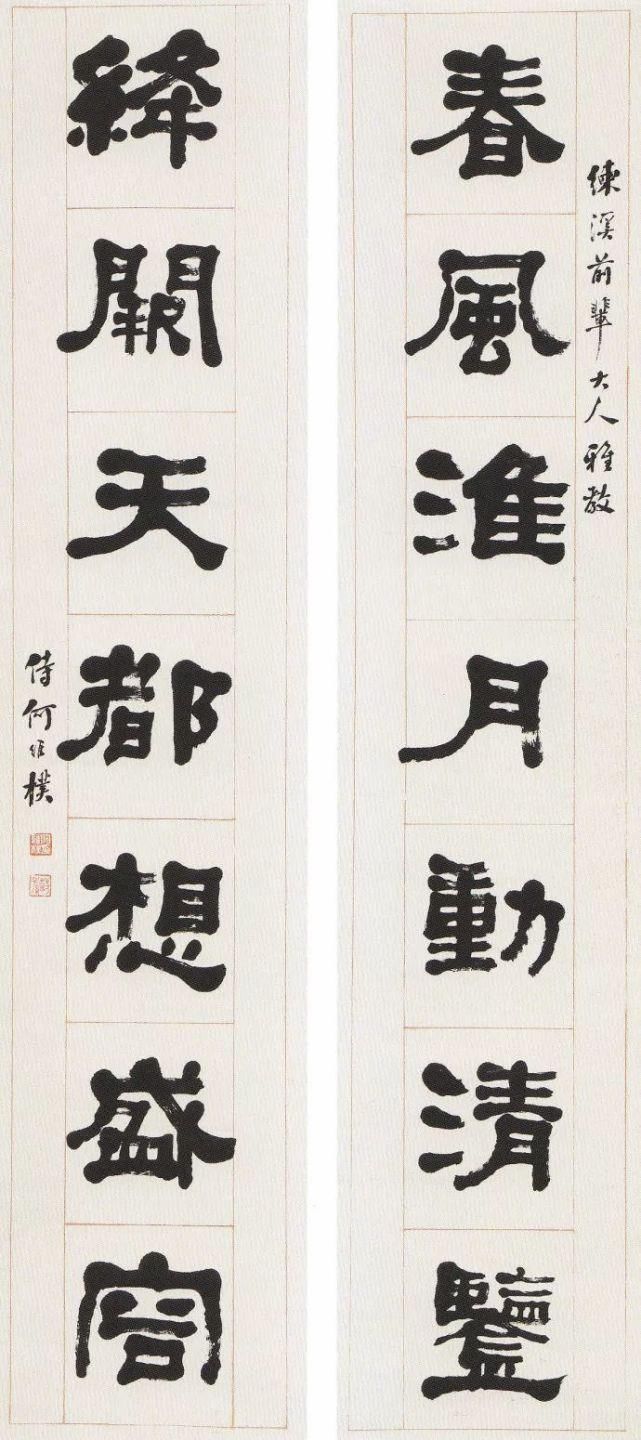 練溪前輩大人雅教
春風淮月動清鑒
絳闕天都想盛容
侍何維樸